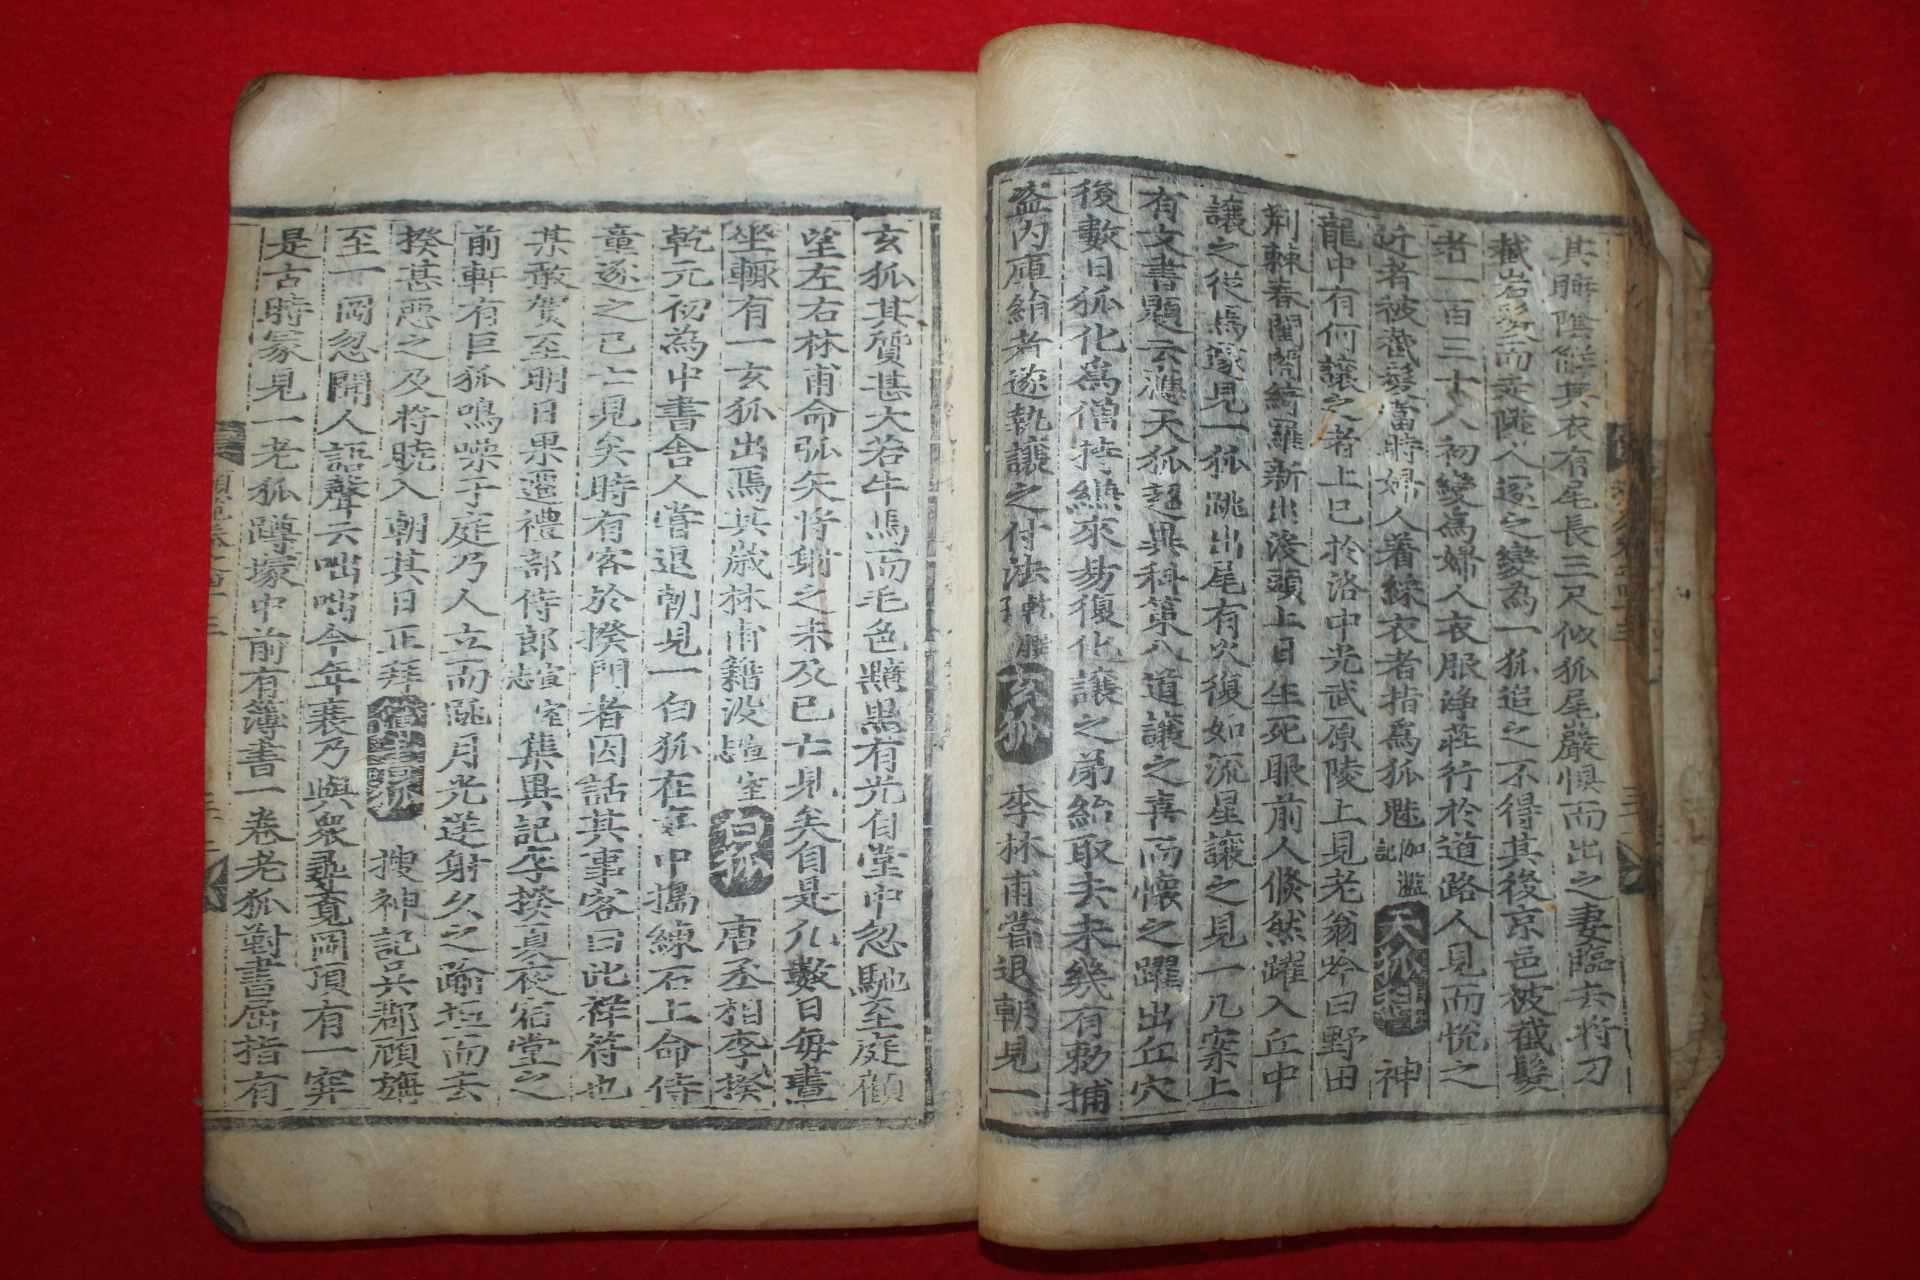 其臍陰解其衣有尾長三尺似狐尾巖懼而出之妻臨去將刀
截岩髮而走隣人逐之變為一狐追之不得其後京邑被截髮
者一百三十人初變為婦人衣服淨莊行於道路人見而悅之
近者被截髮當時婦人着綵衣者指爲狐魅 伽藍記 天狐 神
龍中有何讓之者上巳於洛中光武原陵上見老翁吟曰野田
荊棘春閨閤綺羅新出沒頭上日生死眼前人倏然躍入丘中
讓之從焉遂見一狐跳出尾有火復如流星讓之見一几案上
有文書題云應天狐超異科第八道讓之喜而懷之躍出丘穴
後數日狐化爲僧持縑來易復化讓之弟紿取去未幾有勅捕
盜內庫絹者遂執讓之付法 乾𦠆 玄狐 李林甫嘗退朝見一
玄狐其質甚大若牛馬而毛色黯黑有光自堂中忽馳至庭顧
望左右林甫命弧矢將射之未及已亡見矣自是凡數日每晝
坐輒有一玄狐出焉其歲林甫籍沒 宣室志 白狐 唐丞相李揆
乾元初為中書舍人嘗退朝見一白狐在庭中搗練石上命侍
童逐之已亡見矣時有客於揆門者因話其事客曰此祥符也
某敢賀至明日果遷禮部侍郎 宣室志 集異記李揆夏夜宿堂之
前軒有巨狐鳴噪于庭乃人立而跳月光迸射久之踰垣而去
揆甚惡之及將曉入朝其日正拜 狐 搜神記吳郡顧旃
至一岡忽聞人語聲云咄咄今年衰乃與衆尋覓岡頂有一穽
是古時冢見一老狐蹲塚中前有簿書一卷老狐對書屈指有